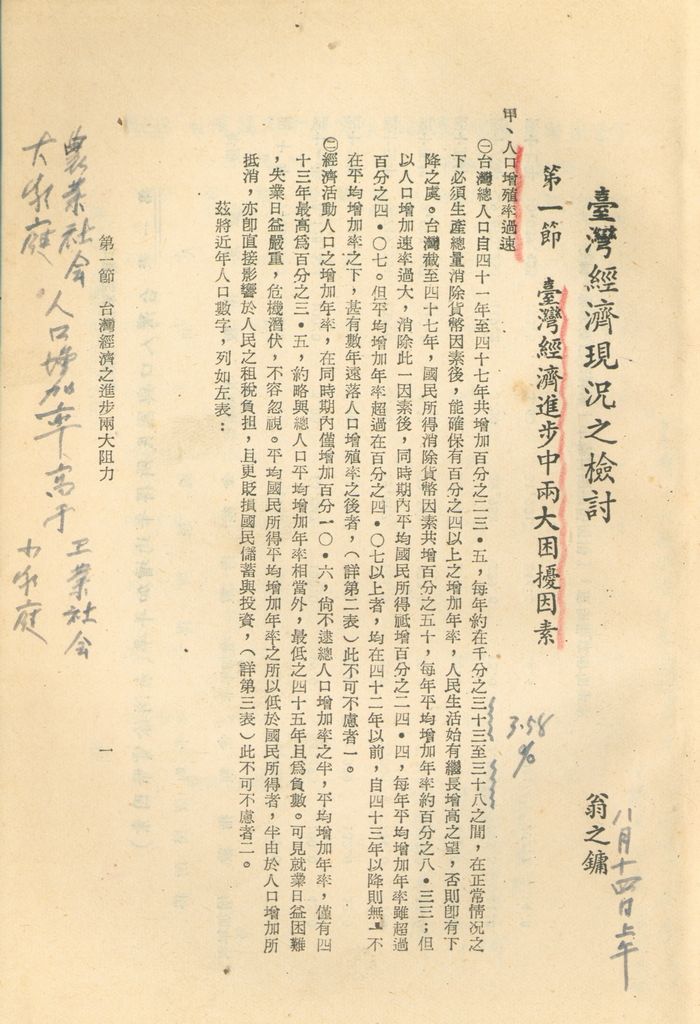 臺灣經濟現況之檢討
翁之鏞
八月十四日上午
第一節　臺灣經濟進步中兩大困擾因素
3.58
%
甲、人口增殖率過速
㊀台灣總人口自四十一年至四十七年共增加百分之二三•五，每年約在千分之三十三至三十八之間，在正常情況之
下必須生產總量消除貨幣因素後，能確保有百分之四以上之增加年率，人民生活始有繼長增高之望，否則卽有下
降之虞。台灣截至四十七年，國民所得消除貨幣因素共增百分之五十，每年平均增加年率約百分之八•三三；但
以人口增加速率過大，消除此一因素後，同時期內平均國民所得祗增百分之二四•四，每年平均增加年率雖超過
百分之四•〇七。但平均增加年率超過在百分之四•〇七以上者，均在四十二年以前，自四十三年以降則無一不
在平均增加率之下，甚有數年遠落人口增殖率之後者，（詳第二表）此不可不慮者一。
㊁經濟活動人口之增加年率，在同時期內僅增加百分一〇•六，尙不逮總人口增加率之半，平均增加年率，僅有四
十三年最高爲百分之三•五，約略與總人口平均增加年率相當外，最低之四十五年且爲負數。可見就業日益困難
，失業日益嚴重，危機潛伏，不容忽視。平均國民所得平均增加年率之所以低於國民所得者，半由於人口增加所
抵消，亦卽直接影響於人民之租稅負担，且更貶損國民儲蓄與投資，（詳第三表）此不可不慮者二。
茲將近年人口數字，列如左表：
第一節　台灣經濟之進步兩大阻力
一
農業社會人口增加率高于工業社會
大家庭　小家庭